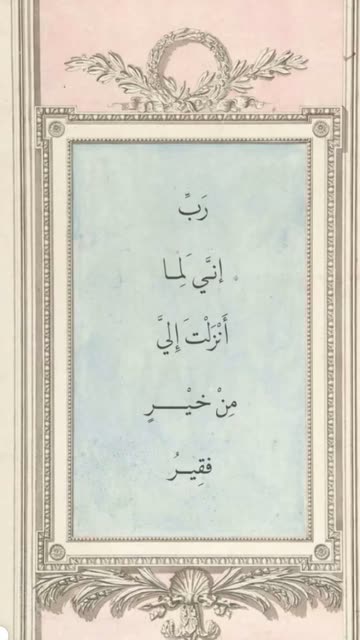 رَبِّ
إنَّي لَمِا
أَنْزَلْتَ إِليَّ
مِنْ خَيْـــرٍ
فقِيـرُ